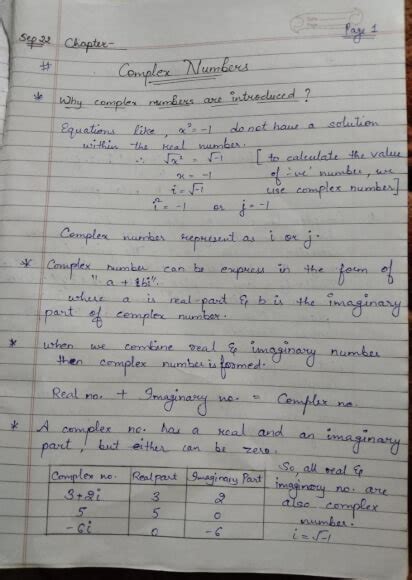 Sep 22 Chapter- Page 1
# Complex Numbers
* Why complex numbers are introduced?
Equations like, x² = -1 do not have a solution
within the real number.
∴ √x² = √-1 [to calculate the value
x = -1 of '-ve' number, we
i = √-1 use complex number]
i² = -1 or j = -1
Complex number represent as i or j.
* Complex number can be express in the form of
"a + bi".
where a is real-part & b is the imaginary
part of complex number.
* when we combine real & imaginary number
then complex number is formed.
Real no. + Imaginary no. = Complex no.
* A complex no. has a real and an imaginary
part, but either can be zero.
Complex no. Real part Imaginary Part So, all real &
3+2i 3 2 imaginary no. are
5 5 0 also complex
-6i 0 -6 number.
i = √-1